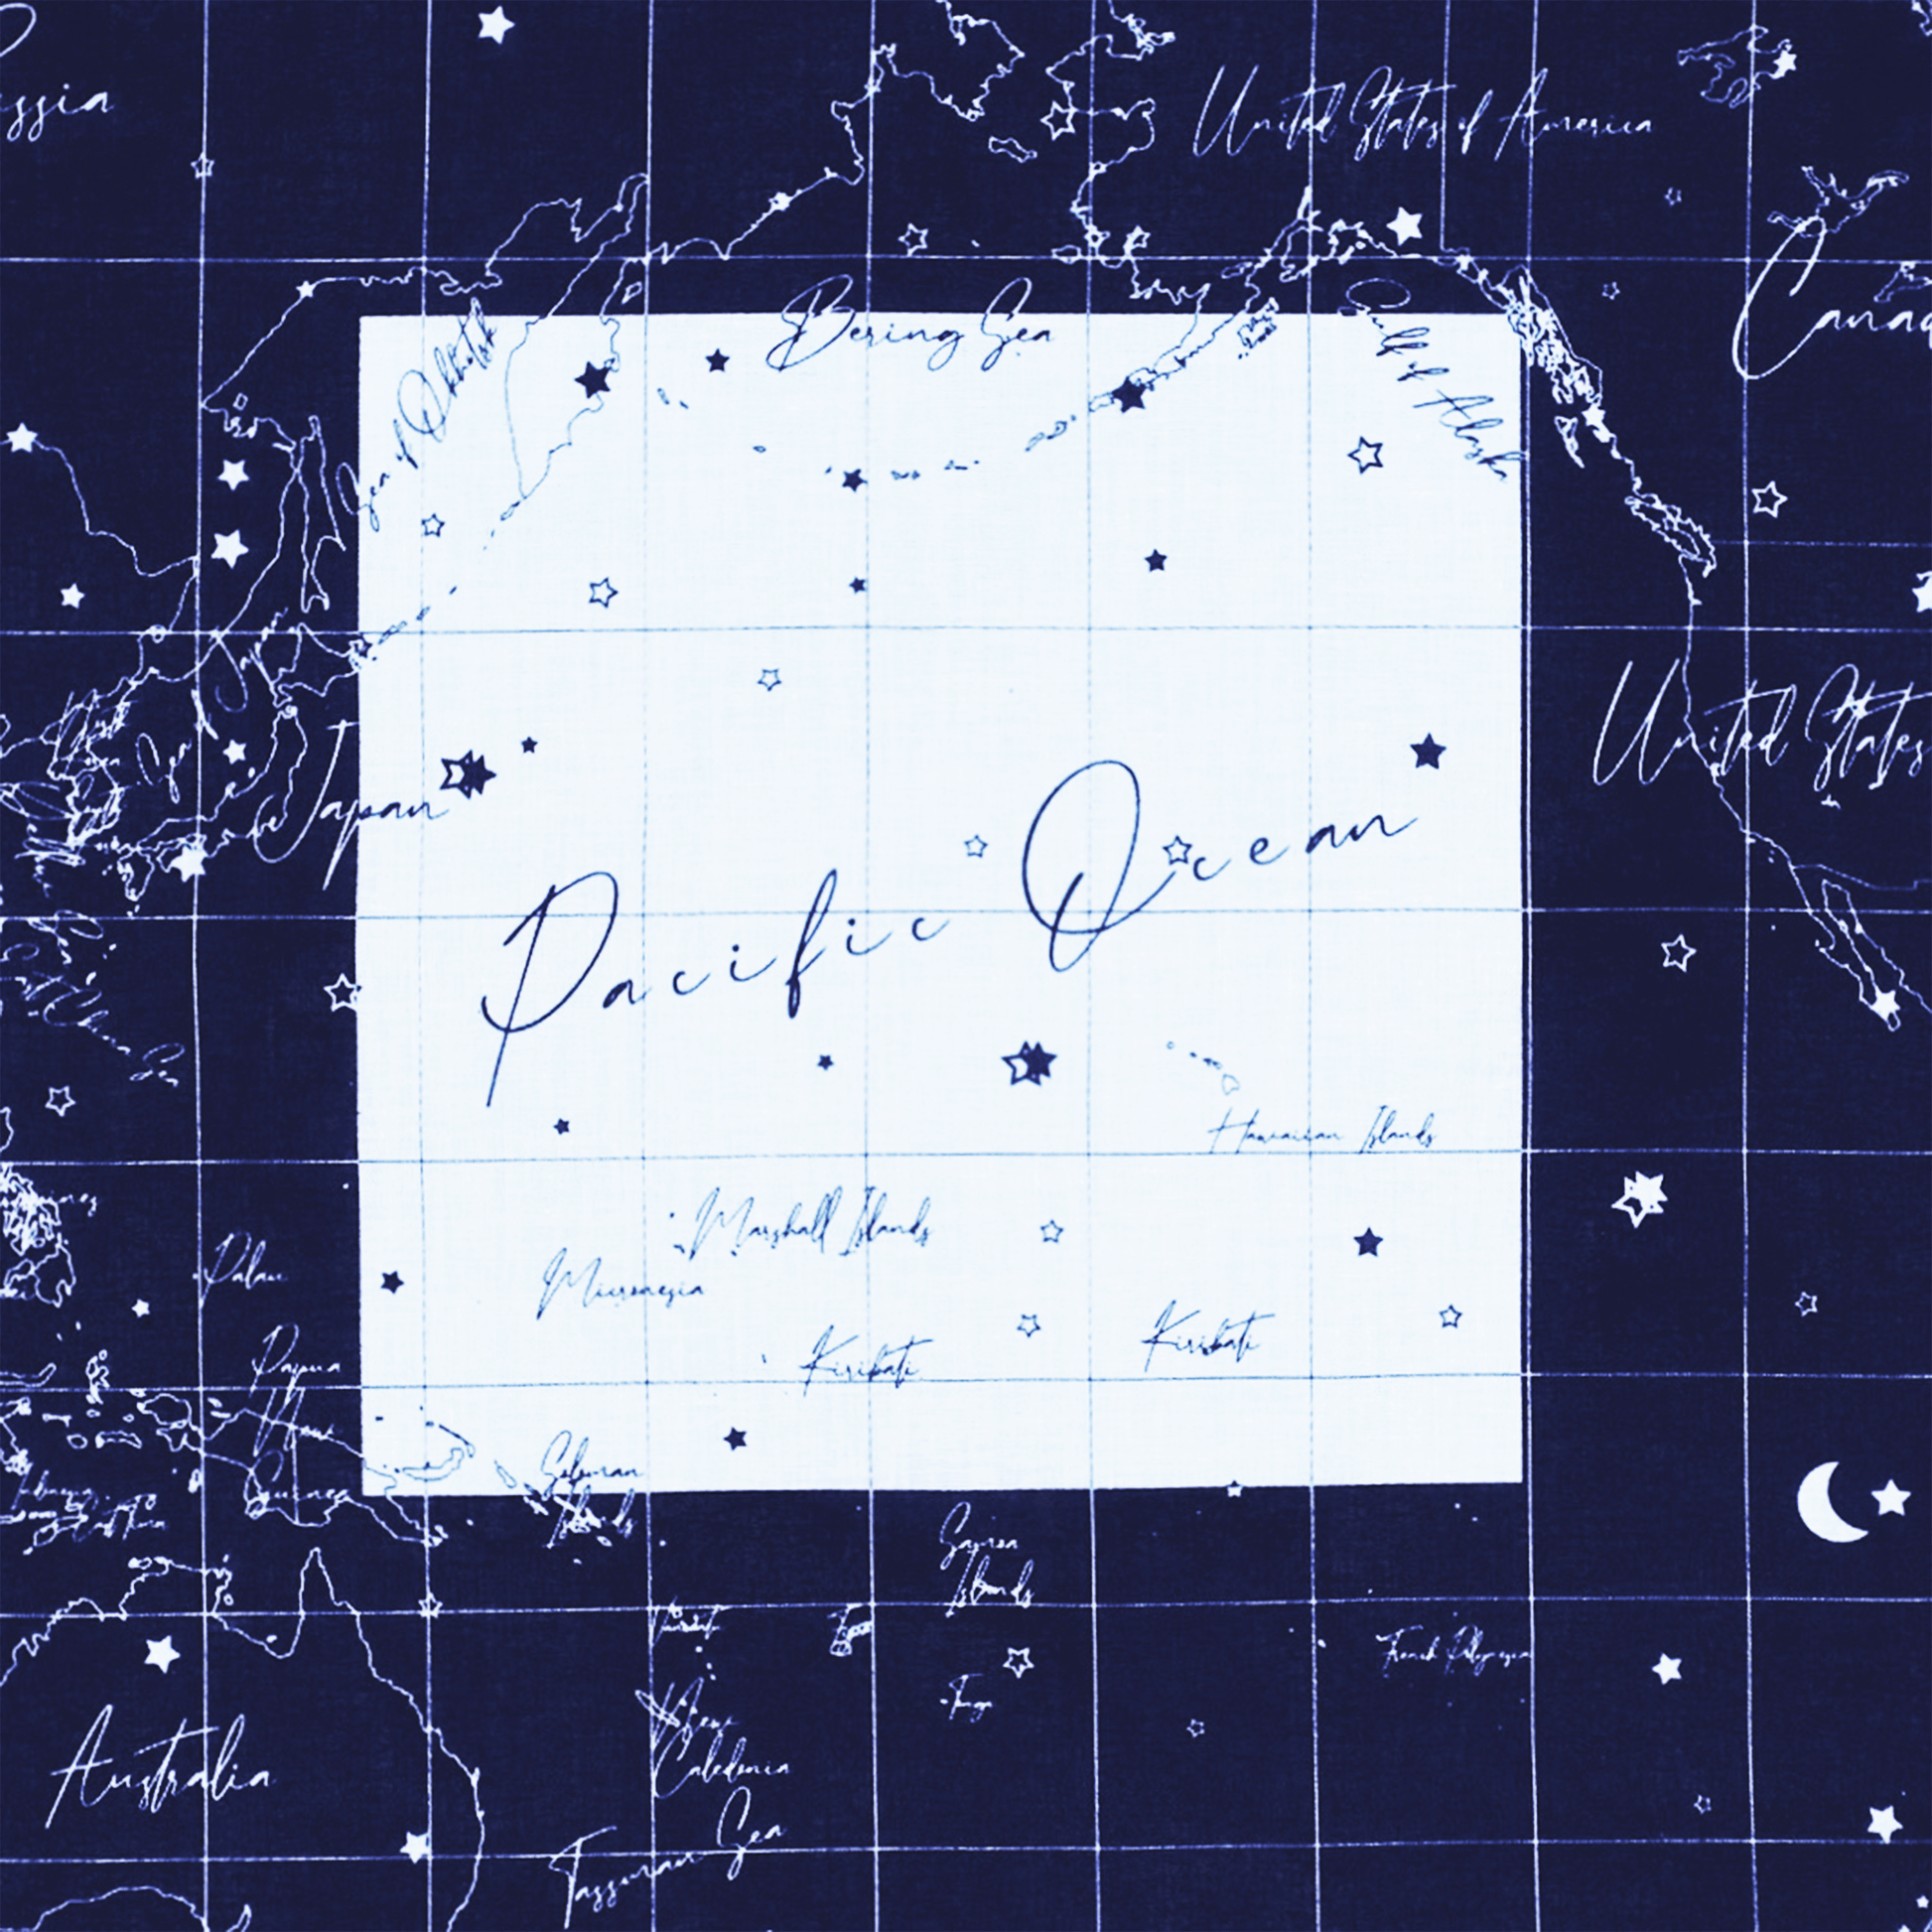 ssia
United States of America
Canad
Bering Sea
Sea of Okhotsk
Gulf of Alaska
Japan
United States
Japan
Pacific Ocean
Hawaiian Islands
Marshall Islands
Palau
Micronesia
Kiribati
Kiribati
Papua
New
Guinea
Solomon
Islands
Samoa
Islands
Vanuatu
French Polynesia
Tonga
New
Caledonia
Australia
Tasman Sea